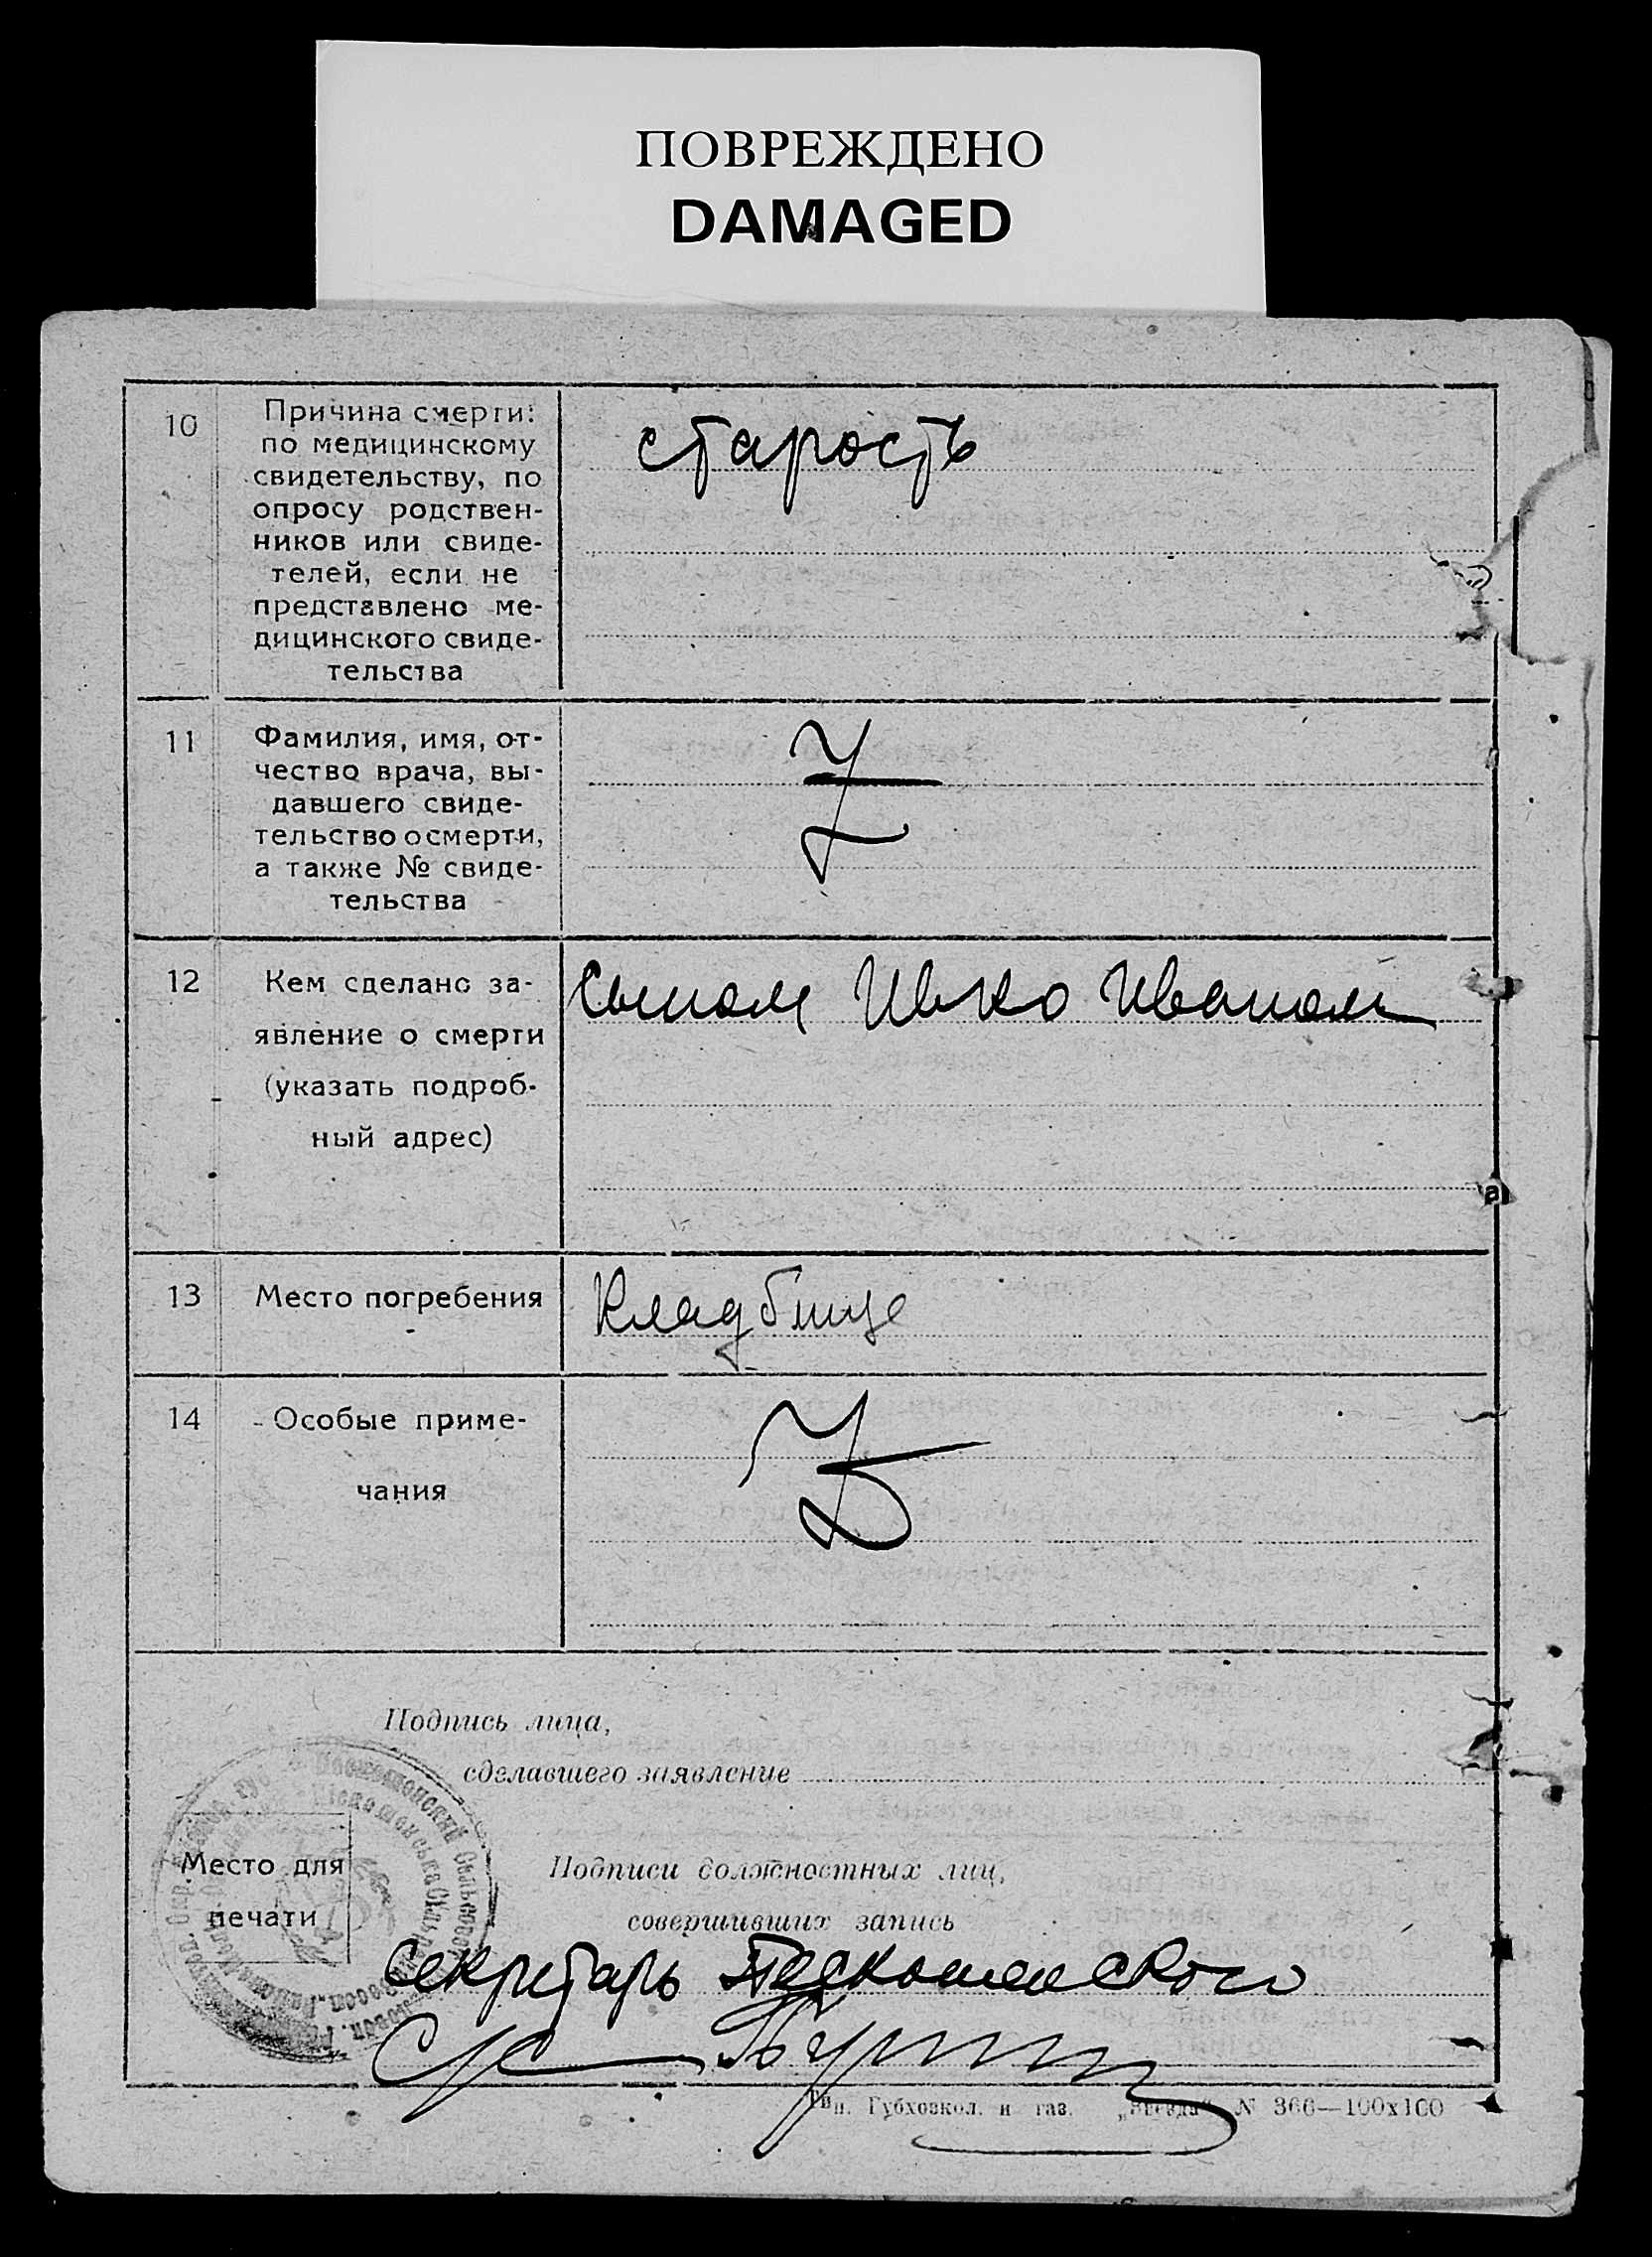 ПОВРЕЖДЕНО
DAMAGED
10
Причина смерти:
по медицинскому
свидетельству, по
опросу родствен-
ников или свиде-
телей, если не
представлено ме-
дицинского свиде-
тельства
старость
11
Фамилия, имя, от-
чество врача, вы-
давшего свиде-
тельство о смерти,
а также № свиде-
тельства
12
Кем сделано за-
явление о смерти
(указать подроб-
ный адрес)
Сыном Ивко Иваном
13
Место погребения
Кладбище
14
Особые приме-
чания
Подпись лица,
сделавшего заявление
Место для
печати
Подписи должностных лиц,
совершивших запись
секретарь
Тип. Губхозкол. и газ. „Звезда“ № 366—100x100